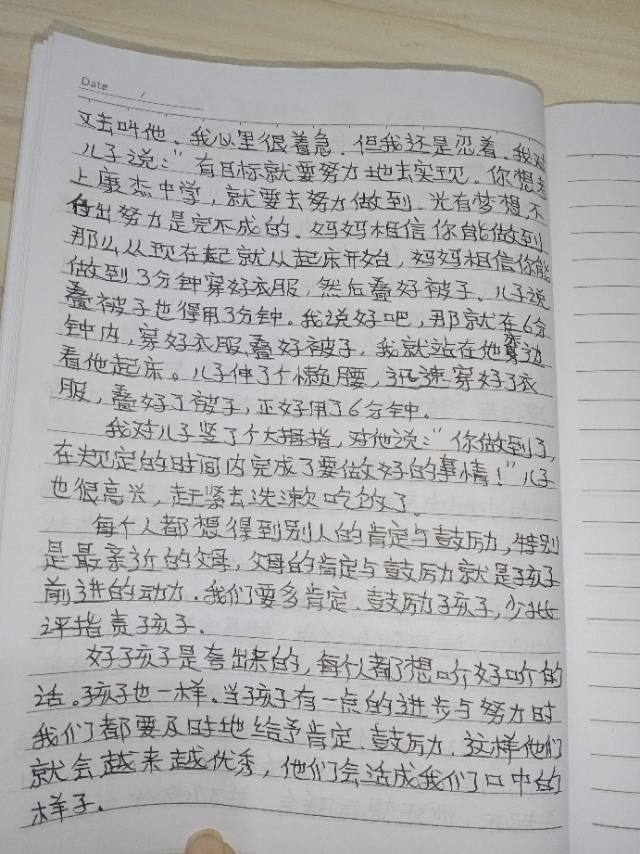 Date /
又去叫他。我心里很着急.但我还是忍着.我对
儿子说:"有目标就要努力地去实现。你想考
上康杰中学,就要去努力做到.光有梦想,不
付出努力是完不成的.妈妈相信你能做到.
那么从现在起就从起床开始,妈妈相信你能
做到3分钟穿好衣服,然后叠好被子.儿子说
叠被子也得用3分钟。我说好吧,那就在6分
钟内,穿好衣服.叠好被子.我就站在他旁边
看他起床。儿子伸了个懒腰,迅速穿好了衣
服,叠好了被子,正好用了6分钟。
我对儿子竖了个大拇指,对他说:"你做到了,
在规定的时间内完成了要做好的事情!"儿子
也很高兴,赶紧去洗漱吃饭了.
每个人都想得到别人的肯定与鼓励,特别
是最亲近的父母,父母的肯定与鼓励就是孩子
前进的动力.我们要多肯定.鼓励孩子,少批
评指责孩子.
好孩子是夸出来的,每个人都想听好听的
话。孩子也一样.当孩子有一点的进步与努力时
我们都要及时地给予肯定.鼓励.这样他们
就会越来越优秀,他们会活成我们口中的
样子.